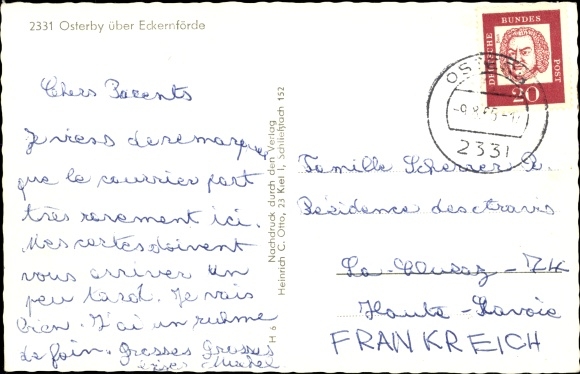 2331 Osterby über Eckernförde
Chers Parents
Je viens de remarquer
que le courrier part
très rarement ici.
Mes cartes doivent
vous arriver un
peu tard. Je vais
bien. J'ai un rhume
de foin. Grosses Grosses
Nachdruck durch den Verlag
Heinrich C. Otto, 23 Kiel 1, Schließfach 152
H 6
DEUTSCHE
BUNDES
POST
20
2331
Famille Scherrer R.
Résidence des
La Clusaz - 74
Haute-Savoie
FRANKREICH